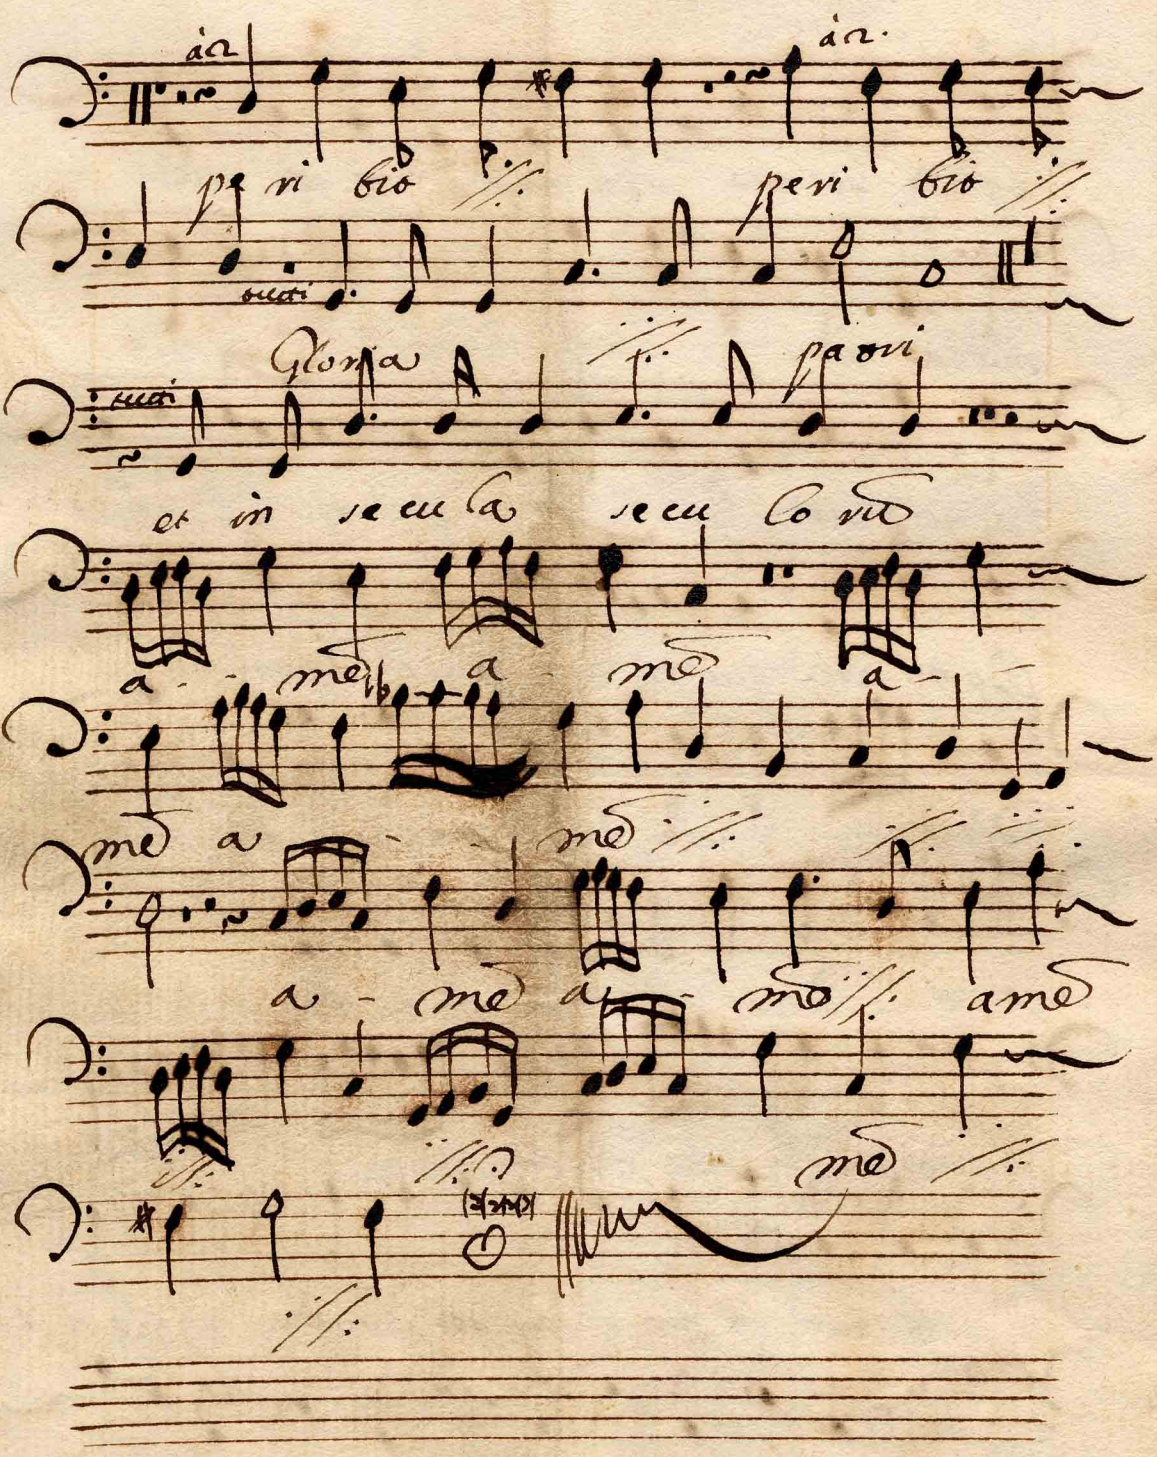 à 2 à 2.
pe ri bit peri bit
tutti
Gloria patri
tutti
et in secula secu lo rũ
a - - mẽ a - mẽ a - -
mẽ a - - mẽ
a - mẽ a - mẽ amẽ
mẽ